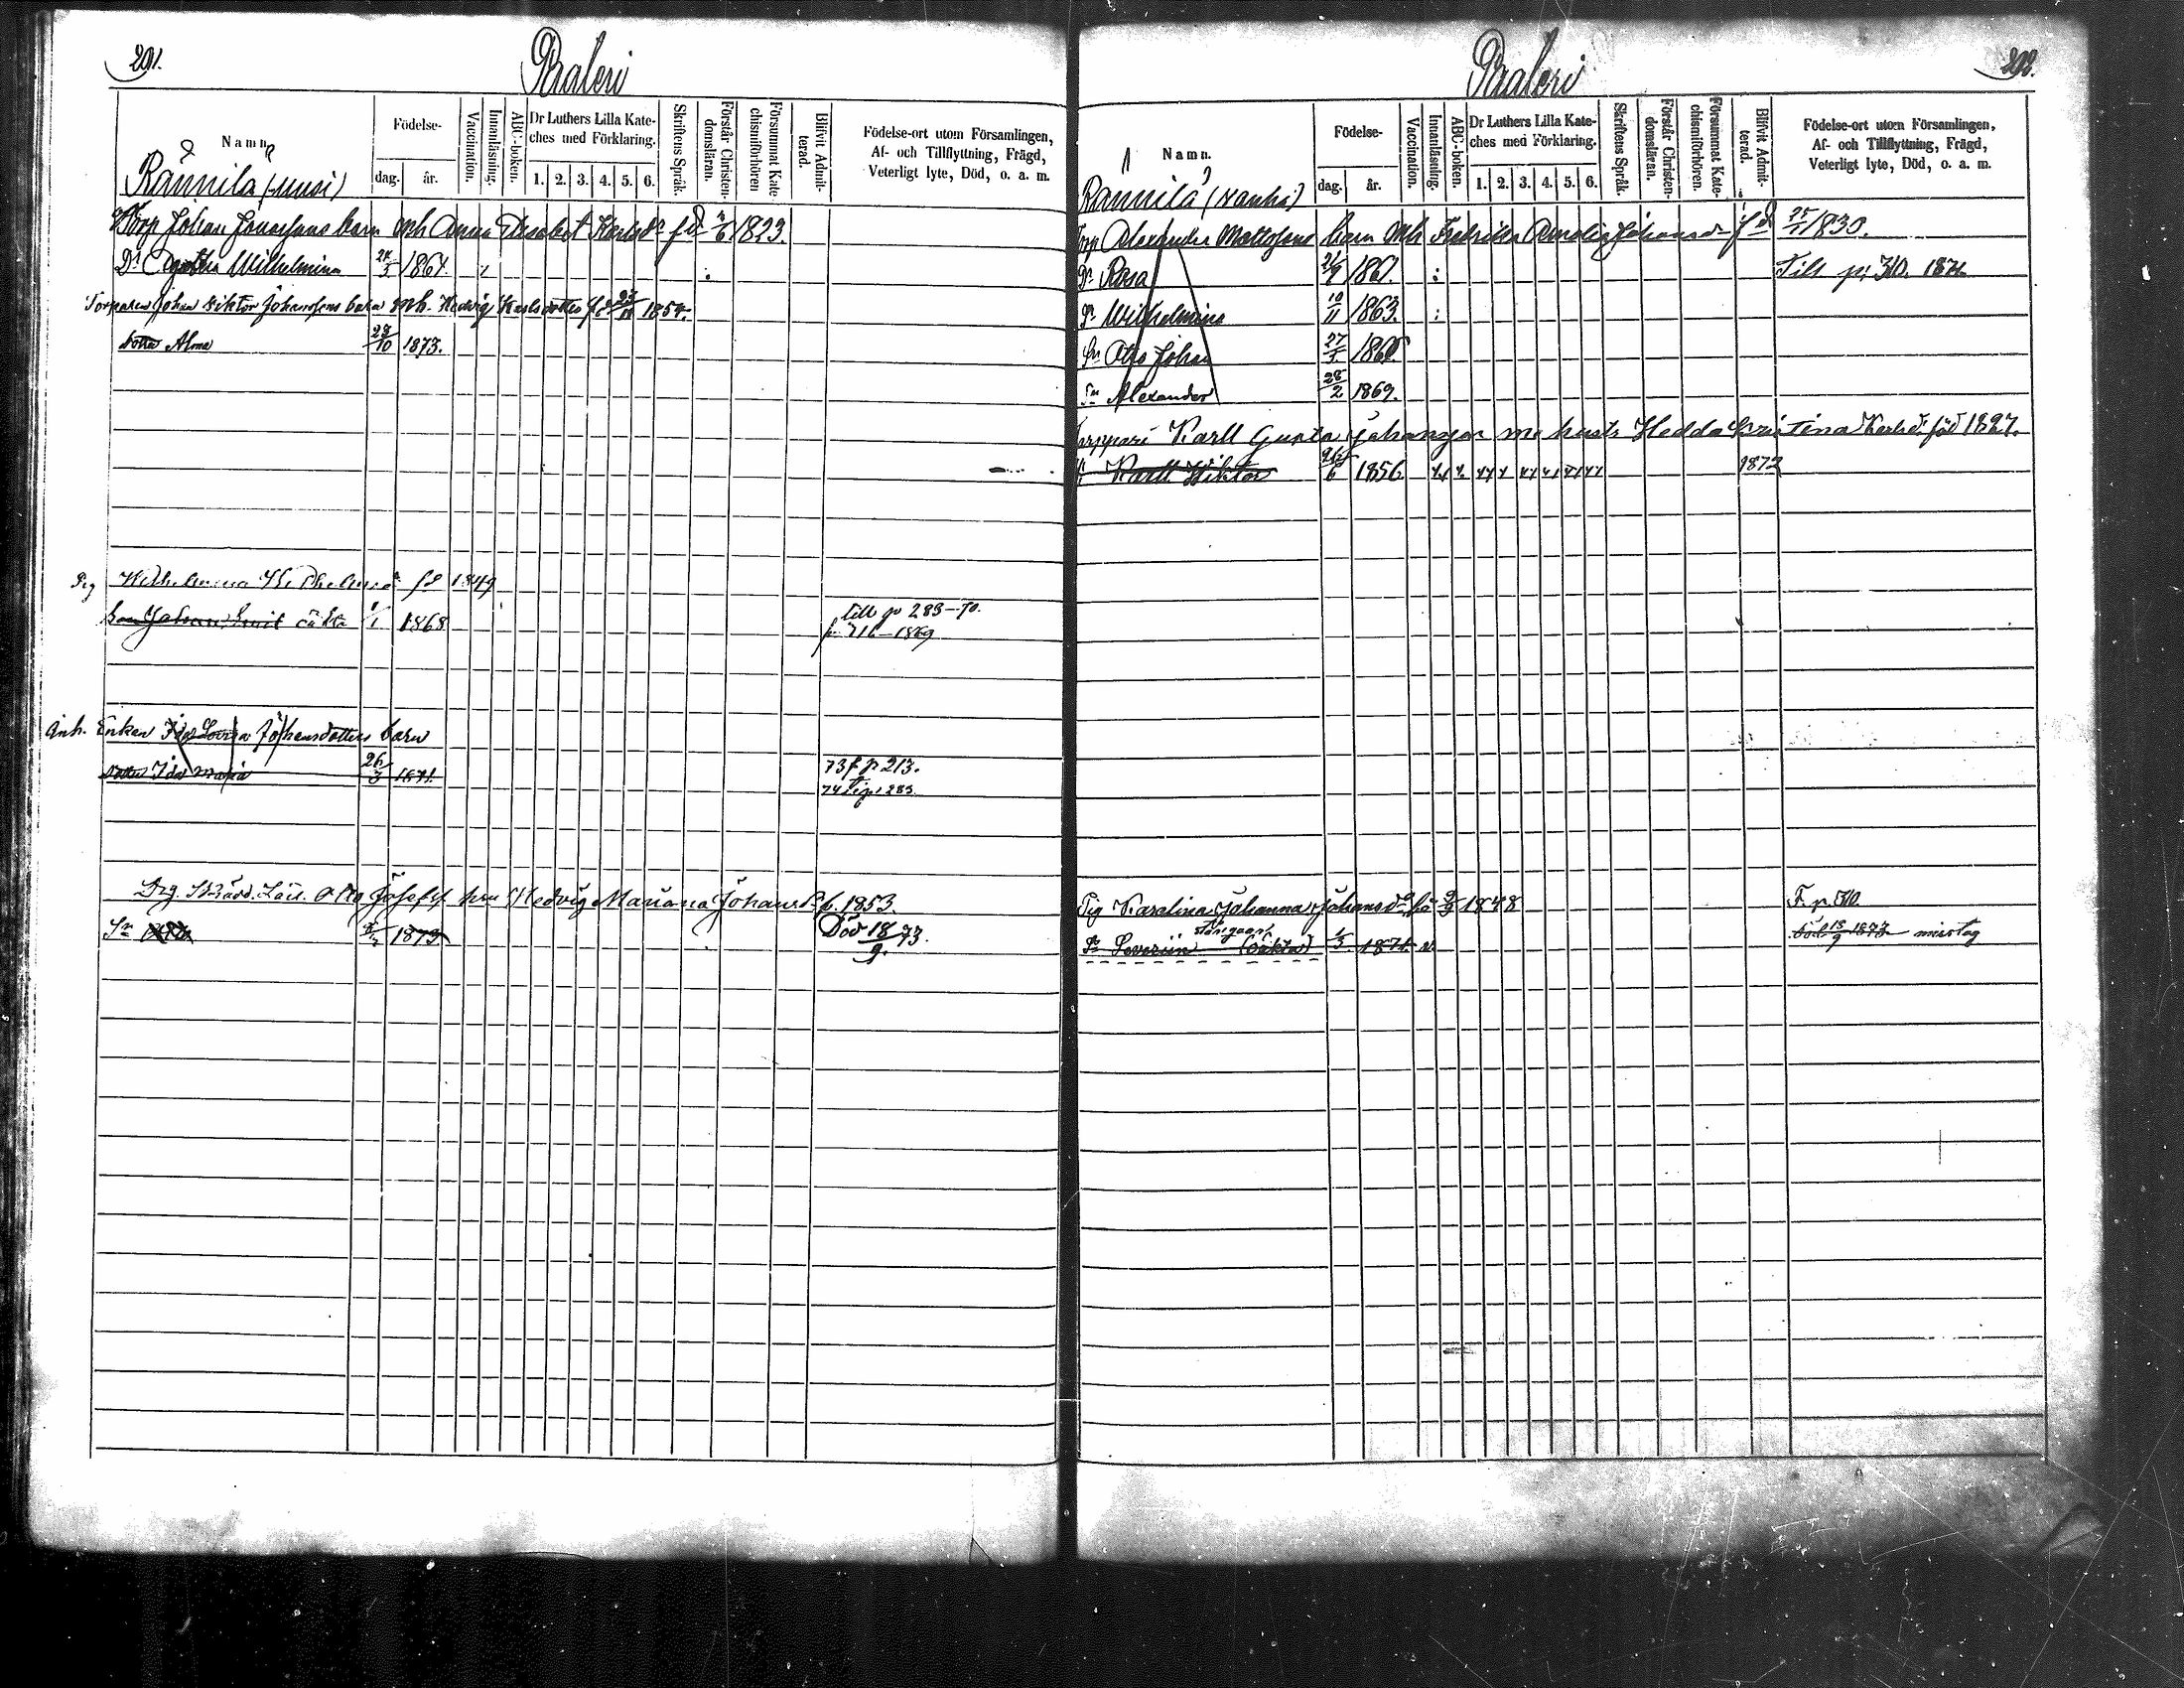 201.
Paaleri
Namn
Födelse-
dag. år.
Vaccination.
Innanläsning.
ABC-boken.
Dr Luthers Lilla Kate-
ches med Förklaring.
1. 2. 3. 4. 5. 6.
Skriftens Språk.
Förstår Christen-
domsläran.
Försummat Kate-
chismiförhören
Blifvit Admit-
terad.
Födelse-ort utom Församlingen,
Af- och Tillflyttning, Frägd,
Veterligt lyte, Död, o. a. m.
Rännilä (Uusi)
Torp Johan barn mh Anna Karlsdr fd 1823.
Dr Wilhelmina 24/3 1861
Torparen Johan Viktor Johanssons barn mh. Hedvig Karlsdotter fd 1854.
Dotter Alma 28/10 1873.
Pig Wilhelmina fd 1849
Son Johan Emil oäkta 1/1 1868 till p 283-70.
1869
Inh. Enkan Ida Johansdotters barn
Dotter Ida Maria 26/3 1871. 73 f p 213.
74 t. p. 283
Drg. Otto Josefss. hu Hedvig Mariana Johansd. f. 1853.
Sn Otto 1873 Död 18/9 73.
202.
Paaleri
Namn.
Födelse-
dag. år.
Vaccination.
Innanläsning.
ABC-boken.
Dr Luthers Lilla Kate-
ches med Förklaring.
1. 2. 3. 4. 5. 6.
Skriftens Språk.
Förstår Christen-
domsläran.
Försummat Kate-
chismiförhören.
Blifvit Admit-
terad.
Födelse-ort utom Församlingen,
Af- och Tillflyttning, Frägd,
Veterligt lyte, Död, o. a. m.
Rännilä (Vanha)
Torp Alexander Mattssons barn mh Fredrika Amalia Johansdr fd 25/1 1830.
Dr Rosa 1861. Till p. 310. 1871
Dr Wilhelmina 10/11 1863
Sn Otto Johan 27/5 1866
Sn Alexander 28/2 1869.
Torppari Karll Gusta Johansson me hustr Hedda Kristina Karlsd. föd 1827.
Karll Wiktor 26/6 1856 1872
Pig Karolina Johanna Johansdr fd 1848 F. p. 310
Sn Severiin (oäkta) 1/3 1871 v. död 18/9 1873 misstag